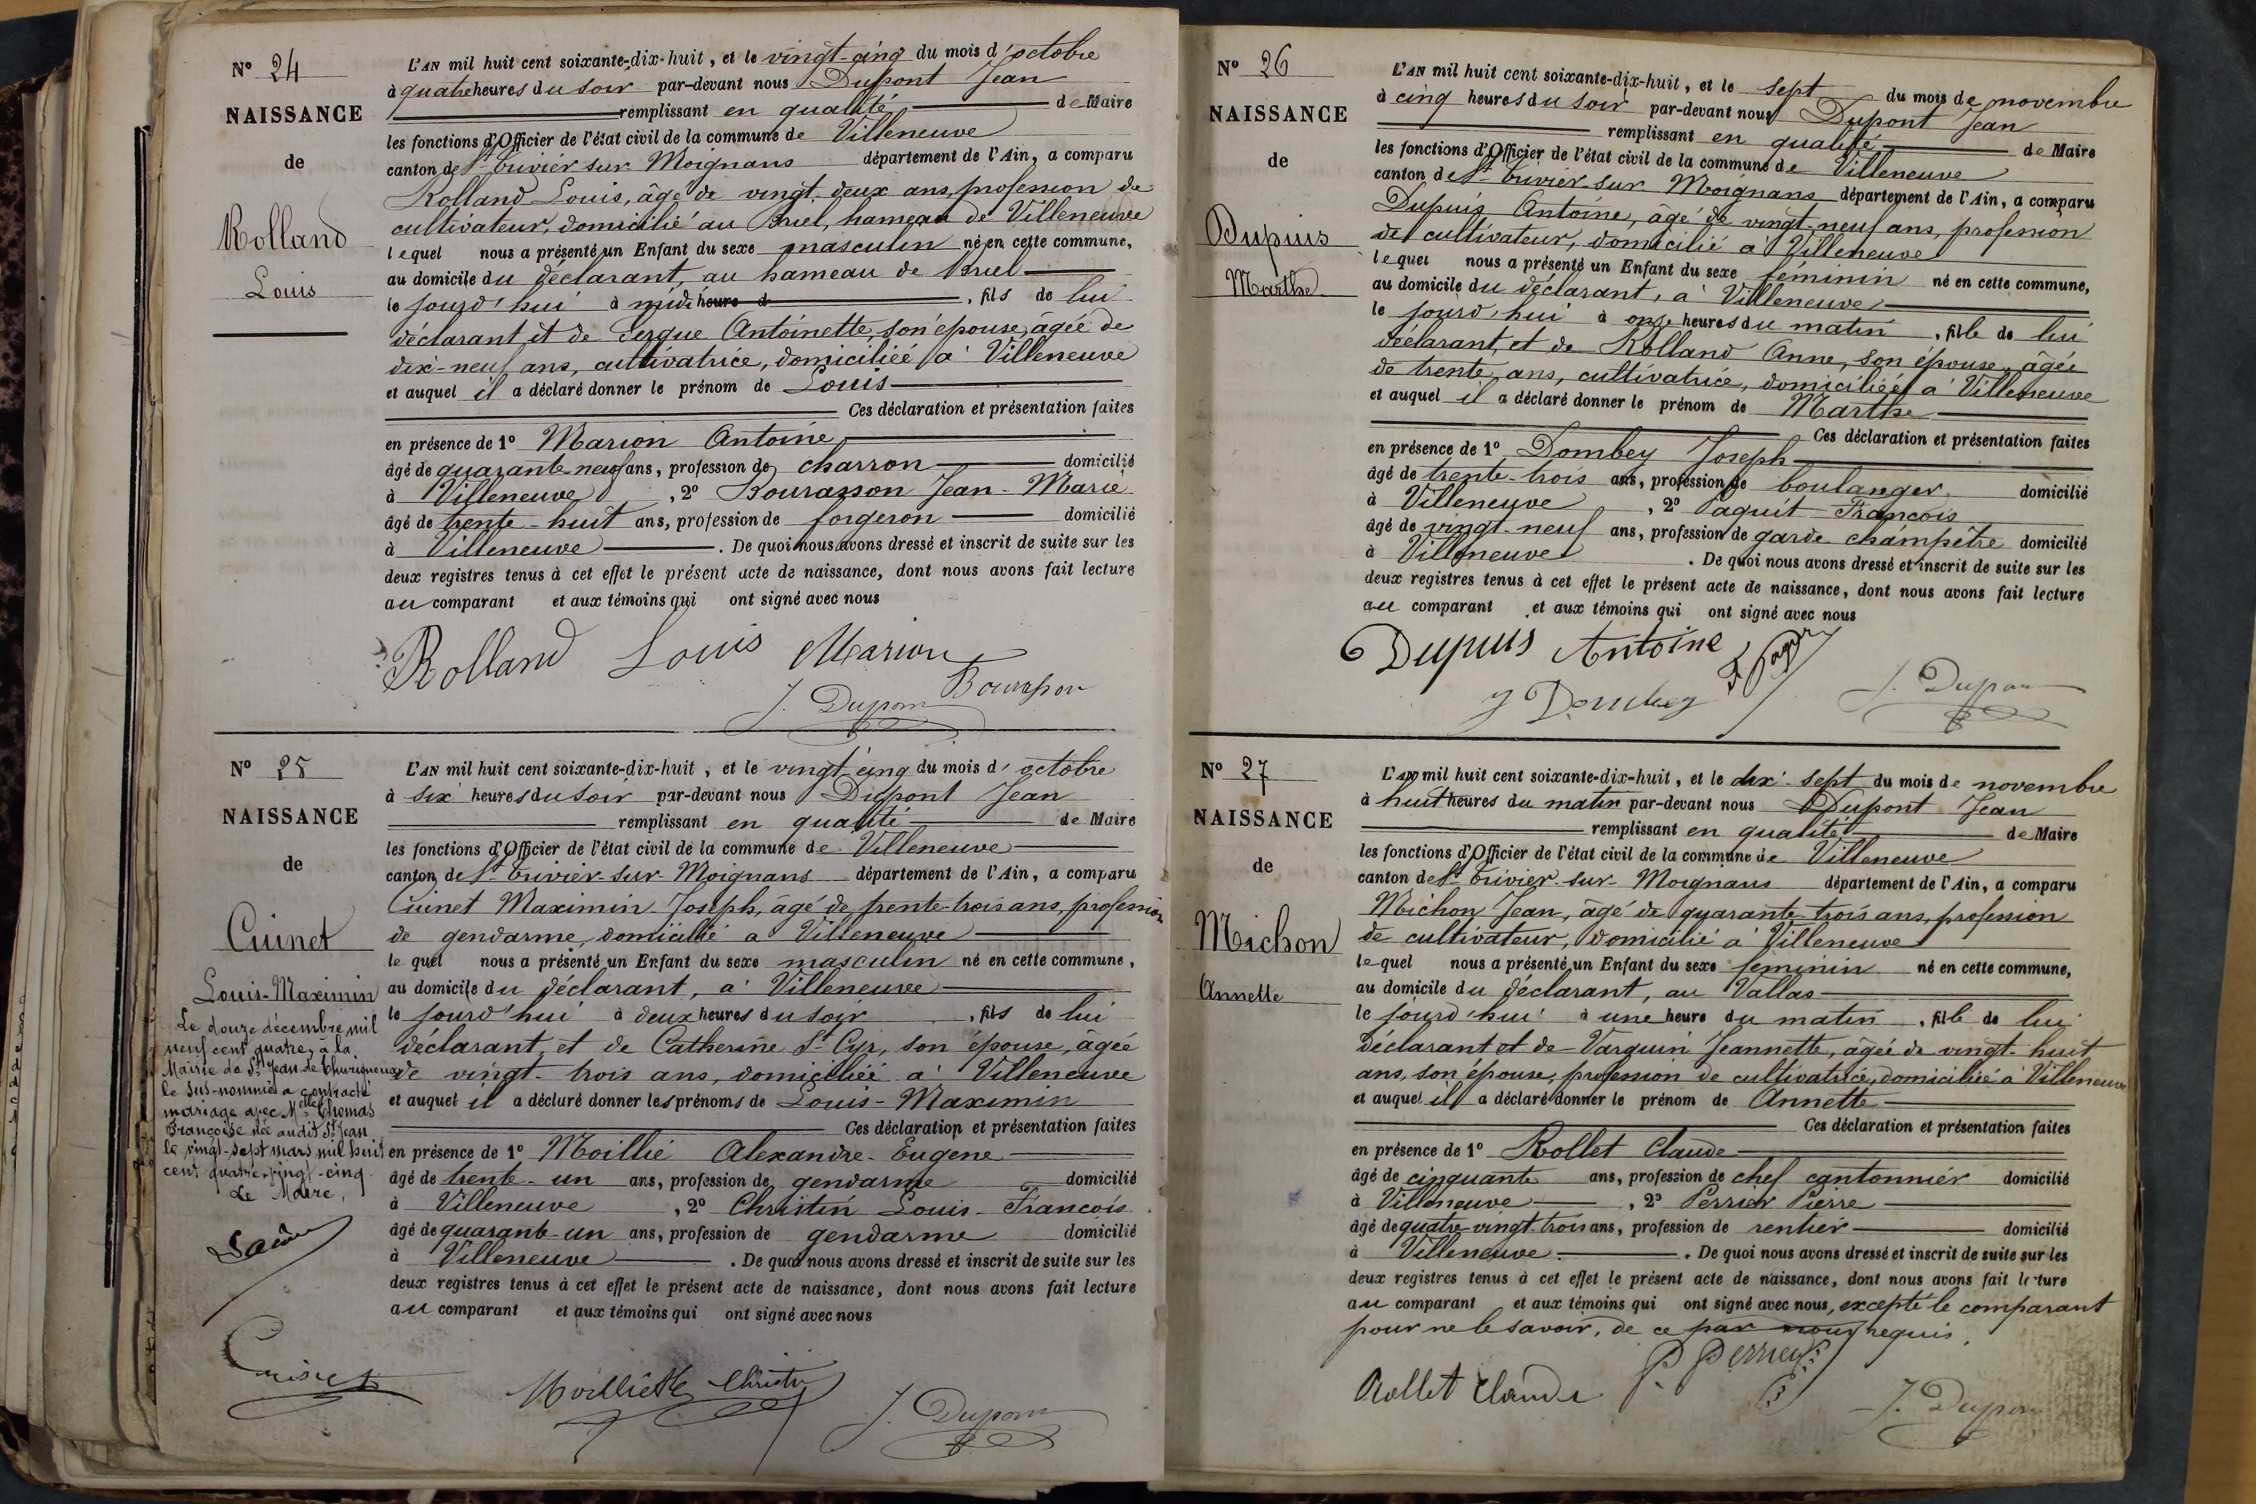 N° 24
NAISSANCE
de
Rolland
Louis
L'AN mil huit cent soixante-dix-huit, et le vingt-cinq du mois d'octobre
à quatre heures du soir par-devant nous Dupont Jean
remplissant en qualité de Maire
les fonctions d'Officier de l'état civil de la commune de Villeneuve
canton de St Trivier sur Moignans département de l'Ain, a comparu
Rolland Louis, âgé de vingt-deux ans, profession de
cultivateur, domicilié au hameau de Villeneuve
lequel nous a présenté un Enfant du sexe masculin né en cette commune,
au domicile du déclarant, au hameau de
le jourd'hui à midi heure d , fils de lui
déclarant et de Antoinette, son épouse, âgée de
dix-neuf ans, cultivatrice, domiciliée à Villeneuve
et auquel il a déclaré donner le prénom de Louis
Ces déclaration et présentation faites
en présence de 1° Marion Antoine
âgé de quarante-neuf ans, profession de charron domicilié
à Villeneuve, 2° Bourasson Jean-Marie
âgé de trente-huit ans, profession de forgeron domicilié
à Villeneuve . De quoi nous avons dressé et inscrit de suite sur les
deux registres tenus à cet effet le présent acte de naissance, dont nous avons fait lecture
au comparant et aux témoins qui ont signé avec nous
Rolland Louis Marion
J. Dupont Bourasson
N° 25
NAISSANCE
de
Cuinet
Louis-Maximin
Le douze décembre mil
neuf cent quatre, à la
Mairie de St Jean de Thurigneux
le sus-nommé a contracté
mariage avec Melle Thomas
Françoise née audit St Jean
le vingt-sept mars mil huit
cent quatre-vingt-cinq.
Le Maire,
L'AN mil huit cent soixante-dix-huit, et le vingt cinq du mois d'octobre
à six heures du soir par-devant nous Dupont Jean
remplissant en qualité de Maire
les fonctions d'Officier de l'état civil de la commune de Villeneuve
canton de St Trivier-sur-Moignans département de l'Ain, a comparu
Cuinet Maximin-Joseph, âgé de trente-trois ans, profession
de gendarme, domicilié à Villeneuve
lequel nous a présenté un Enfant du sexe masculin né en cette commune,
au domicile du déclarant, à Villeneuve
le jourd'hui à deux heures du soir, fils de lui
déclarant, et de Catherine St Cyr, son épouse, âgée
de vingt-trois ans, domiciliée à Villeneuve
et auquel il a déclaré donner les prénoms de Louis-Maximin
Ces déclaration et présentation faites
en présence de 1° Moillié Alexandre-Eugene
âgé de trente-un ans, profession de gendarme domicilié
à Villeneuve, 2° Christin Louis-François
âgé de quarante-un ans, profession de gendarme domicilié
à Villeneuve . De quoi nous avons dressé et inscrit de suite sur les
deux registres tenus à cet effet le présent acte de naissance, dont nous avons fait lecture
au comparant et aux témoins qui ont signé avec nous
Cuinet Christin
J. Dupont
N° 26
NAISSANCE
de
Dupuis
Marthe
L'AN mil huit cent soixante-dix-huit, et le sept du mois de novembre
à cinq heures du soir par-devant nous Dupont Jean
remplissant en qualité de Maire
les fonctions d'Officier de l'état civil de la commune de Villeneuve
canton de St Trivier-sur Moignans département de l'Ain, a comparu
Dupuis Antoine, âgé de vingt-neuf ans, profession
de cultivateur, domicilié à Villeneuve
lequel nous a présenté un Enfant du sexe féminin né en cette commune,
au domicile du déclarant, à Villeneuve
le jourd'hui à onze heures du matin, fille de lui
déclarant, et de Rolland Anne, son épouse, âgée
de trente ans, cultivatrice, domiciliée à Villeneuve
et auquel il a déclaré donner le prénom de Marthe
Ces déclaration et présentation faites
en présence de 1° Dombey Joseph
âgé de trente-trois ans, profession de boulanger domicilié
à Villeneuve, 2° Paquit François
âgé de vingt-neuf ans, profession de garde champêtre domicilié
à Villeneuve . De quoi nous avons dressé et inscrit de suite sur les
deux registres tenus à cet effet le présent acte de naissance, dont nous avons fait lecture
au comparant et aux témoins qui ont signé avec nous
Dupuis Antoine
J Dombey J. Dupont
N° 27
NAISSANCE
de
Michon
Annette
L'AN mil huit cent soixante-dix-huit, et le dix-sept du mois de novembre
à huit heures du matin par-devant nous Dupont Jean
remplissant en qualité de Maire
les fonctions d'Officier de l'état civil de la commune de Villeneuve
canton de St Trivier-sur-Moignans département de l'Ain, a comparu
Michon Jean, âgé de quarante-trois ans, profession
de cultivateur, domicilié à Villeneuve
lequel nous a présenté un Enfant du sexe féminin né en cette commune,
au domicile du déclarant, au Vallas
le jourd'hui à une heure du matin, fille de lui
déclarant et de Varguin Jeannette, âgée de vingt-huit
ans, son épouse, profession de cultivatrice, domiciliée à Villeneuve
et auquel il a déclaré donner le prénom de Annette
Ces déclaration et présentation faites
en présence de 1° Rollet Claude
âgé de cinquante ans, profession de chef cantonnier domicilié
à Villeneuve, 2° Perrier Pierre
âgé de quatre-vingt-trois ans, profession de rentier domicilié
à Villeneuve. De quoi nous avons dressé et inscrit de suite sur les
deux registres tenus à cet effet le présent acte de naissance, dont nous avons fait lecture
au comparant et aux témoins qui ont signé avec nous, excepté le comparant
pour ne le savoir, de ce par nous requis.
Rollet Claude P. Perrier
J. Dupont